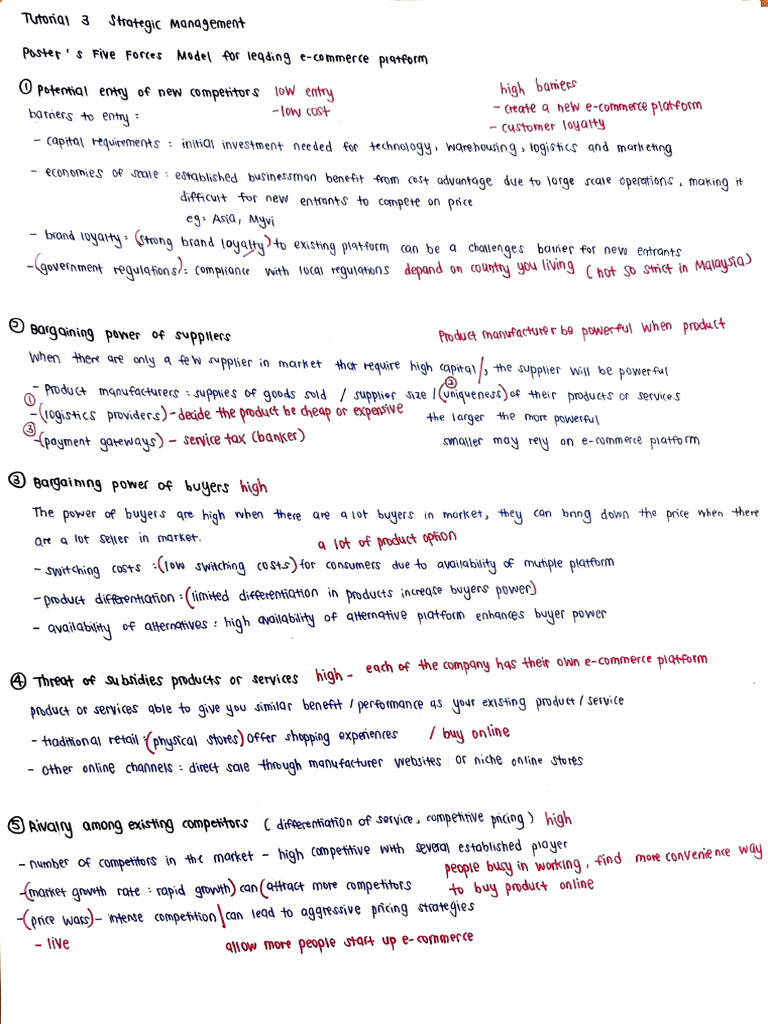 Tutorial 3 Strategic Management
Poster's Five Forces Model for leading e-commerce platform
① Potential entry of new competitors low entry high barriers
barriers to entry : - low cost - create a new e-commerce platform
- customer loyalty
- capital requirements : initial investment needed for technology, warehousing, logistics and marketing
- economies of scale : established businessman benefit from cost advantage due to large scale operations, making it
difficult for new entrants to compete on price
eg : Asia, Myvi
- brand loyalty : (strong brand loyalty) to existing platform can be a challenges barrier for new entrants
- (government regulations) : compliance with local regulations depand on country you living (not so strict in Malaysia)
② Bargaining power of suppliers Product manufacturer be powerful when product
When there are only a few supplier in market that require high capital /, the supplier will be powerful
- Product manufacturers : supplies of goods sold / supplier size / (uniqueness) ② of their products or services
① - (logistics providers) - decide the product be cheap or expensive the larger the more powerful
③ - (payment gateways) - service tax (banker) smaller may rely on e-commerce platform
③ Bargaining power of buyers high
The power of buyers are high when there are a lot buyers in market, they can bring down the price when there
are a lot seller in market. a lot of product option
- switching costs : (low switching costs) for consumers due to availability of mutiple platform
- product differentiation : (limited differentiation in products increase buyers power)
- availability of alternatives : high availability of alternative platform enhances buyer power
④ Threat of subsidies products or services high - each of the company has their own e-commerce platform
product or services able to give you similar benefit / performance as your existing product / service
- traditional retail : (physical stores) offer shopping experiences / buy online
- Other online channels : direct sale through manufacturer websites or niche online stores
⑤ Rivalry among existing competitors ( differentiation of service, competitive pricing ) high
- number of competitors in the market - high competitive with several established player
people busy in working, find more convenience way
- (market growth rate : rapid growth) can (attract more competitors to buy product online
- (price wars) - intense competition / can lead to aggressive pricing strategies
- live allow more people start up e-commerce